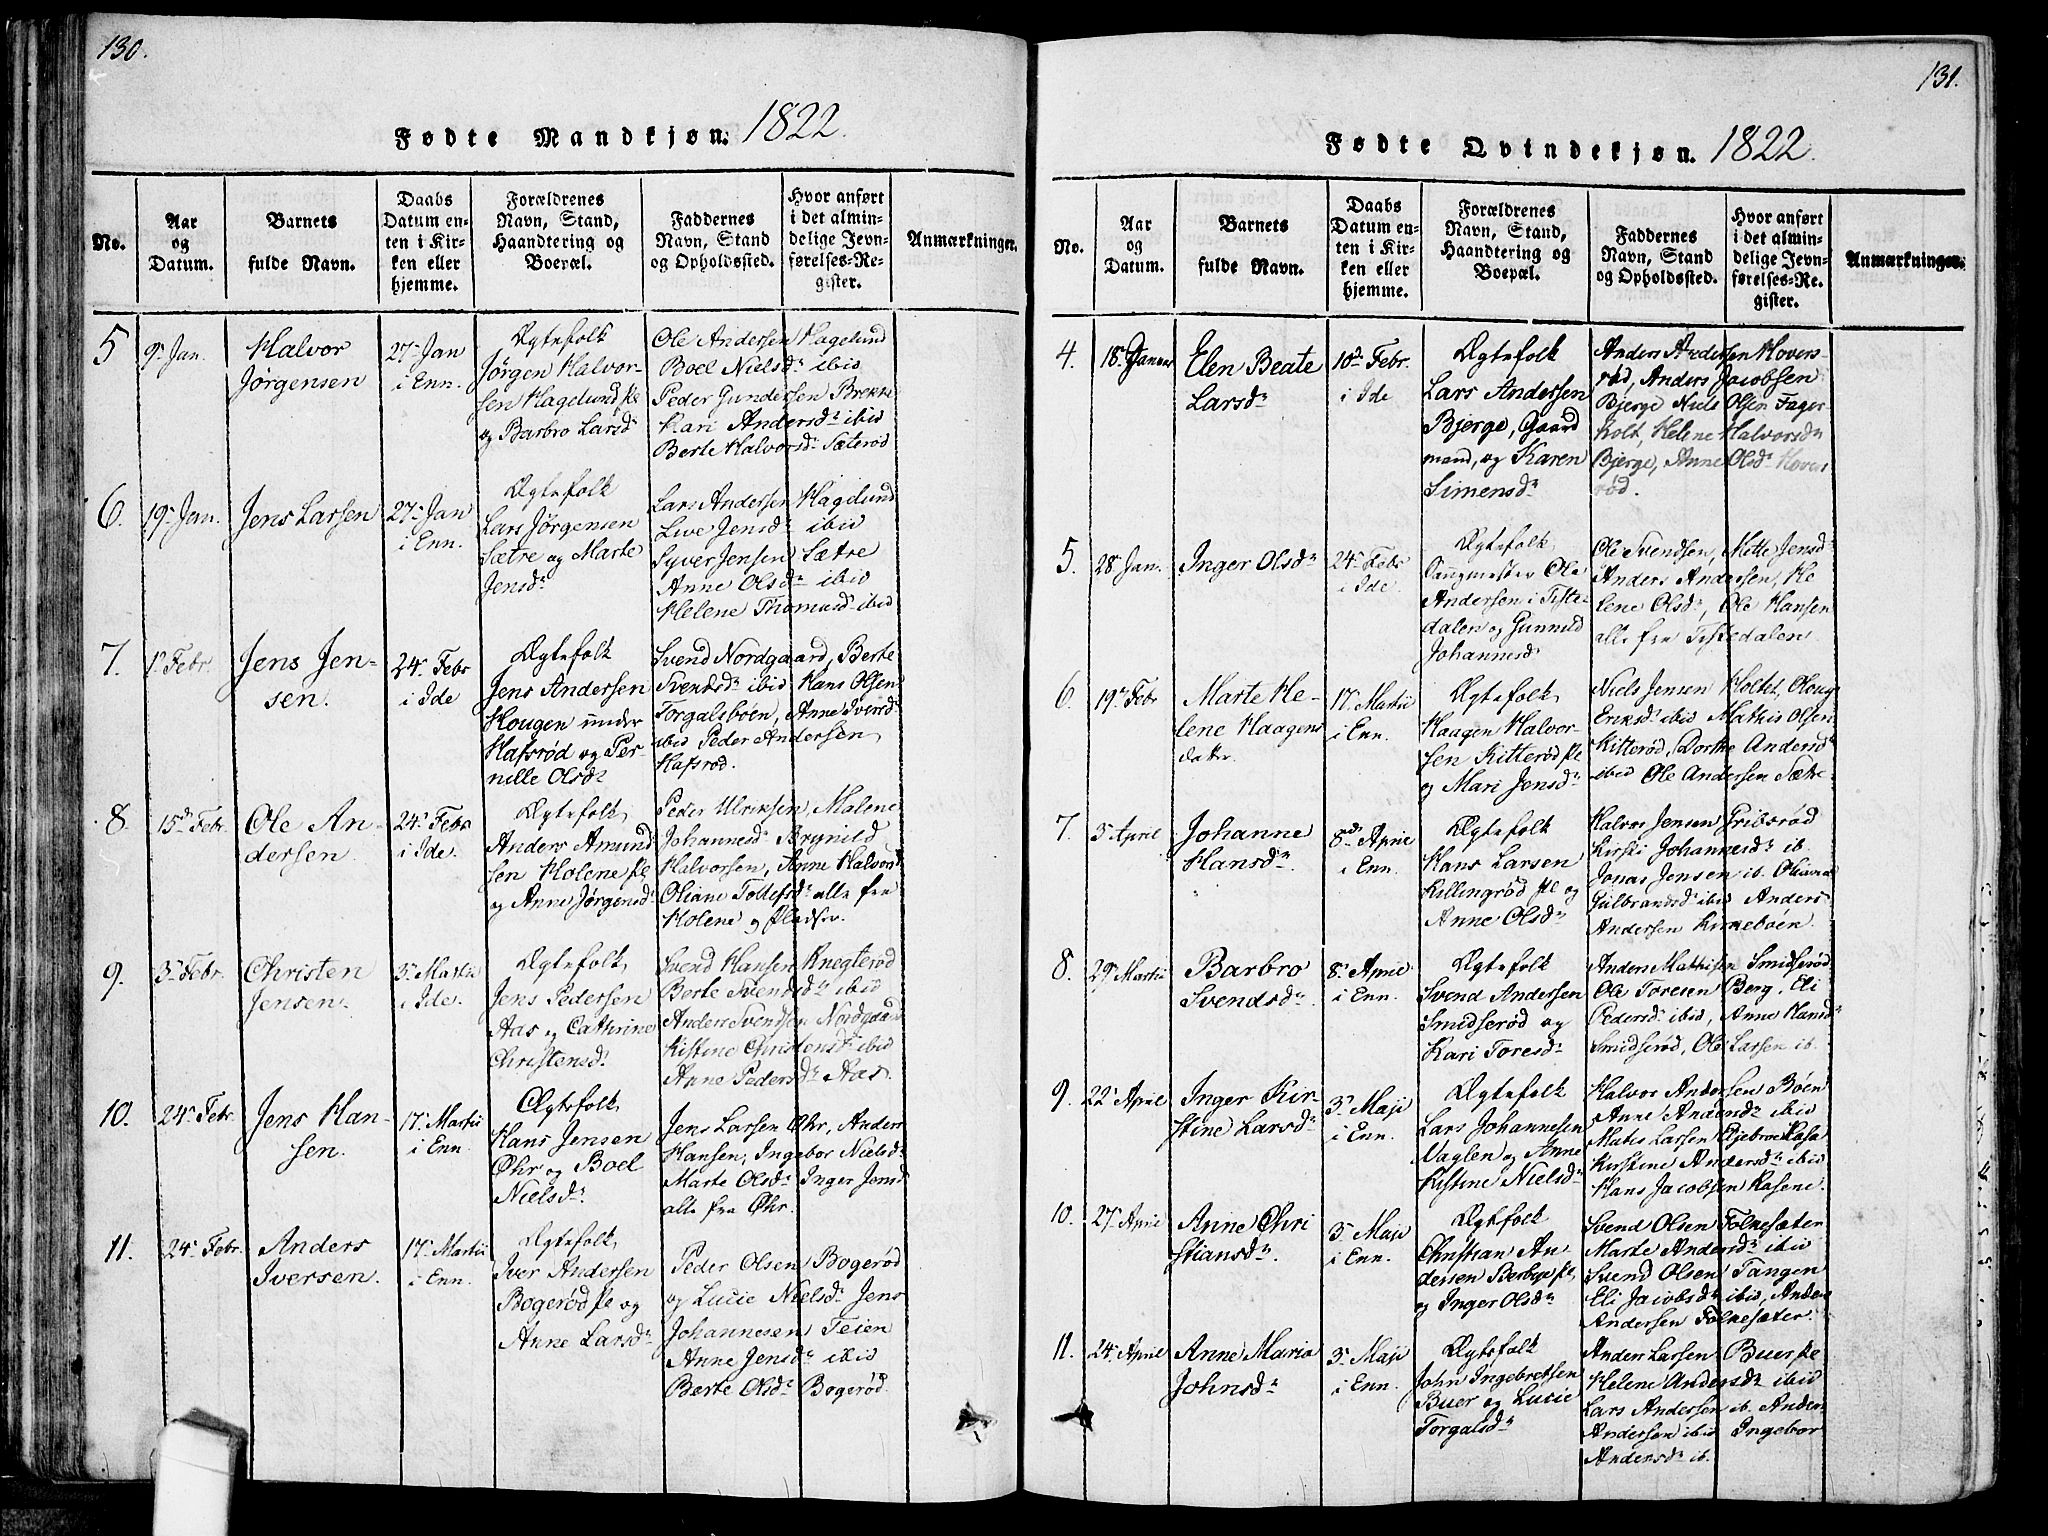 130.
Fødte Mandkjøn. 1822.
No.
Aar
og
Datum.
Barnets
fulde Navn.
Daabs
Datum en-
ten i Kir-
ken eller
hjemme.
Forældrenes
Navn, Stand,
Haandtering og
Boepæl.
Faddernes
Navn, Stand
og Opholdssted.
Hvor anført
i det almin-
delige Jevn-
førelses-Re-
gister.
Anmærkninger.
5
9r Jan.
Halvor
Jørgensen
27r Jan
i Enn.
Ægtefolk
Jørgen Halvor-
sen Hagelund pl
og Barbro Larsdr
Ole Andersen Hagelund
Boel Nielsdr ibid
Peder Gundersen Brekke
Kari Andersdr ibid
Berte Halvorsdr Sæterød
6.
19r Jan.
Jens Larsen
27r Jan
i Enn.
Ægtefolk
Lars Jørgensen
Sætre og Marte
Jensdr
Lars Andersen Hagelund
Live Jensdr ibid
Syver Jensen Sætre
Anne Olsdr ibid
Helene Thomasdr ibid
7.
1r Febr
Jens Jen-
sen.
24r Febr
i Ide
Ægtefolk
Jens Andersen
Hougen under
Hafsrød og Per
nille Olsdr
Svend Nordgaard, Berte
Svendsdr ibid Hans Olsen
Torgalsbøen, Anne Iversdr
ibid Peder Andersen
Hafsrød.
8.
15de Febr.
Ole An-
dersen
24r Febr
i Ide.
Ægtefolk
Anders Amund
sen Holene pl
og Anne Jørgensdr
Peder Ulriksen, Malene
Johannesdr Brynild
Halvorsen, Anne Halvorsdr
Oliane Tollefsdr alle fra
Holene og Pladser.
9.
3r Febr.
Christen
Jensen.
3r Martii
i Ide.
Ægtefolk
Jens Pedersen
Aas og Cathrine
Christensdr
Svend Hansen Knegterød
Berte Svendsdr ibid
Anders Svendsen Nordgaard
Kistine Christensdr ibid
Anne Pedersdr Aas.
10.
24r Febr.
Jens Han-
sen.
17r Martii
i Enn.
Ægtefolk
Hans Jensen
Øhr og Boel
Nielsdr
Jens Larsen Øhr, Anders
Hansen, Ingebor Nielsdr
Marte Olsdr Inger Jensd
alle fra Øhr.
11.
24r Febr.
Anders
Iversen.
17r Martii
i Enn.
Ægtefolk
Iver Andersen
Bogerød pl og
Anne Larsdr
Peder Olsen Bogerød
og Lucie Nielsdr Jens
Johannesen Teien
Anne Jensdr ibid
Bærte Olsdr Bogerød.
131.
Fødte Qvindekjøn. 1822.
No.
Aar
og
Datum.
Barnets
fulde Navn.
Daabs
Datum en-
ten i Kir-
ken eller
hjemme.
Forældrenes
Navn, Stand,
Haandtering og
Boepæl.
Faddernes
Navn, Stand
og Opholdssted.
Hvor anført
i det almin-
delige Jevn-
førelses-Re-
gister.
Anmærkninger.
4.
18r Januar
Elen Beate
Larsdr
10de Febr.
i Ide
Ægtefolk
Lars Andersen
Bjerge, Gaard
mand, og Karen
Simensdr
Anders Andersen Hovers-
rød, Anders Jacobsen
Bjerge Niels Olsen Fager
holt, Helene Halvorsdr
Bjerge, Anne Olsdr Hovers
rød.
5.
28 Jan.
Inger Olsdr
24r Febr
i Ide
Ægtefolk
Saugmester Ole
Andersen i Tiste
dalen og Gunnild
Johannesdr
Ole Svendsen, Mette Jensdr
Anders Andersen, He
lene Olsdr, Ole Hansen
alle fra Tistedalen
6
19r Febr
Marte He-
lene Haagens
datter
17r Martii
i Enn.
Ægtefolk
Haagen Halvor-
sen Kitterød pl
og Mari Jensdr
Niels Jensen Holtet, Oloug
Eriksdr ibid Mathis Olsen
Kitterød, Dorthe Andersdr
ibid Ole Andersen Sætre
7.
3r April
Johanne
Hansdr
8de April
i Enn.
Ægtefolk
Hans Larsen
Killingrød pl og
Anne Olsdr
Halvor Jensen Gribsrød
Kirsti Johannesdr ib.
Jonas Jensen ib. Oliana
Gulbrandsdr ibid Anders
Andersen Kirkebøen.
8.
29r Martii
Barbro
Svendsdr
8r April
i Enn.
Ægtefolk
Svend Andersen
Smidserød og
Kari Toresdr
Anders Mathisen Smidserød
Ole Toresen Berg, Eli
Pedersdr ibid, Anne Hansdr
Smidserød, Ole Larsen ib.
9.
22r April
Inger Kir-
stine Larsdr
3r Maji
i Enn.
Ægtefolk
Lars Johannesen
Vaglen og Anne
Kistine Nielsdr
Halvor Andersen Bøen
Anne Andersdr ibid
Mates Larsen
Kirstine Andersdr ibid
Hans Jacobsen Kasene.
10.
27r April
Anne Chri
stiansdr
3r Maji
i Enn.
Ægtefolk
Christian An-
dersen Berbye pl
og Inger Olsdr
Svend Olsen Folkesæter
Marte Andersdr ibid
Svend Olsen Tangen
Eli Jacobsdr ibid, Anders
Andersen Folkesæter.
11.
24r April
Anne Maria
Johnsdr
3r Maji
i Enn.
Ægtefolk
John Ingebretsen
Buer og Lucie
Torgalsdr
Anders Larsen Buer pl
Helene Andersdr ibid
Lars Andersen ib. Anders
Andersen ibid Ingebor
Andersdr ib.